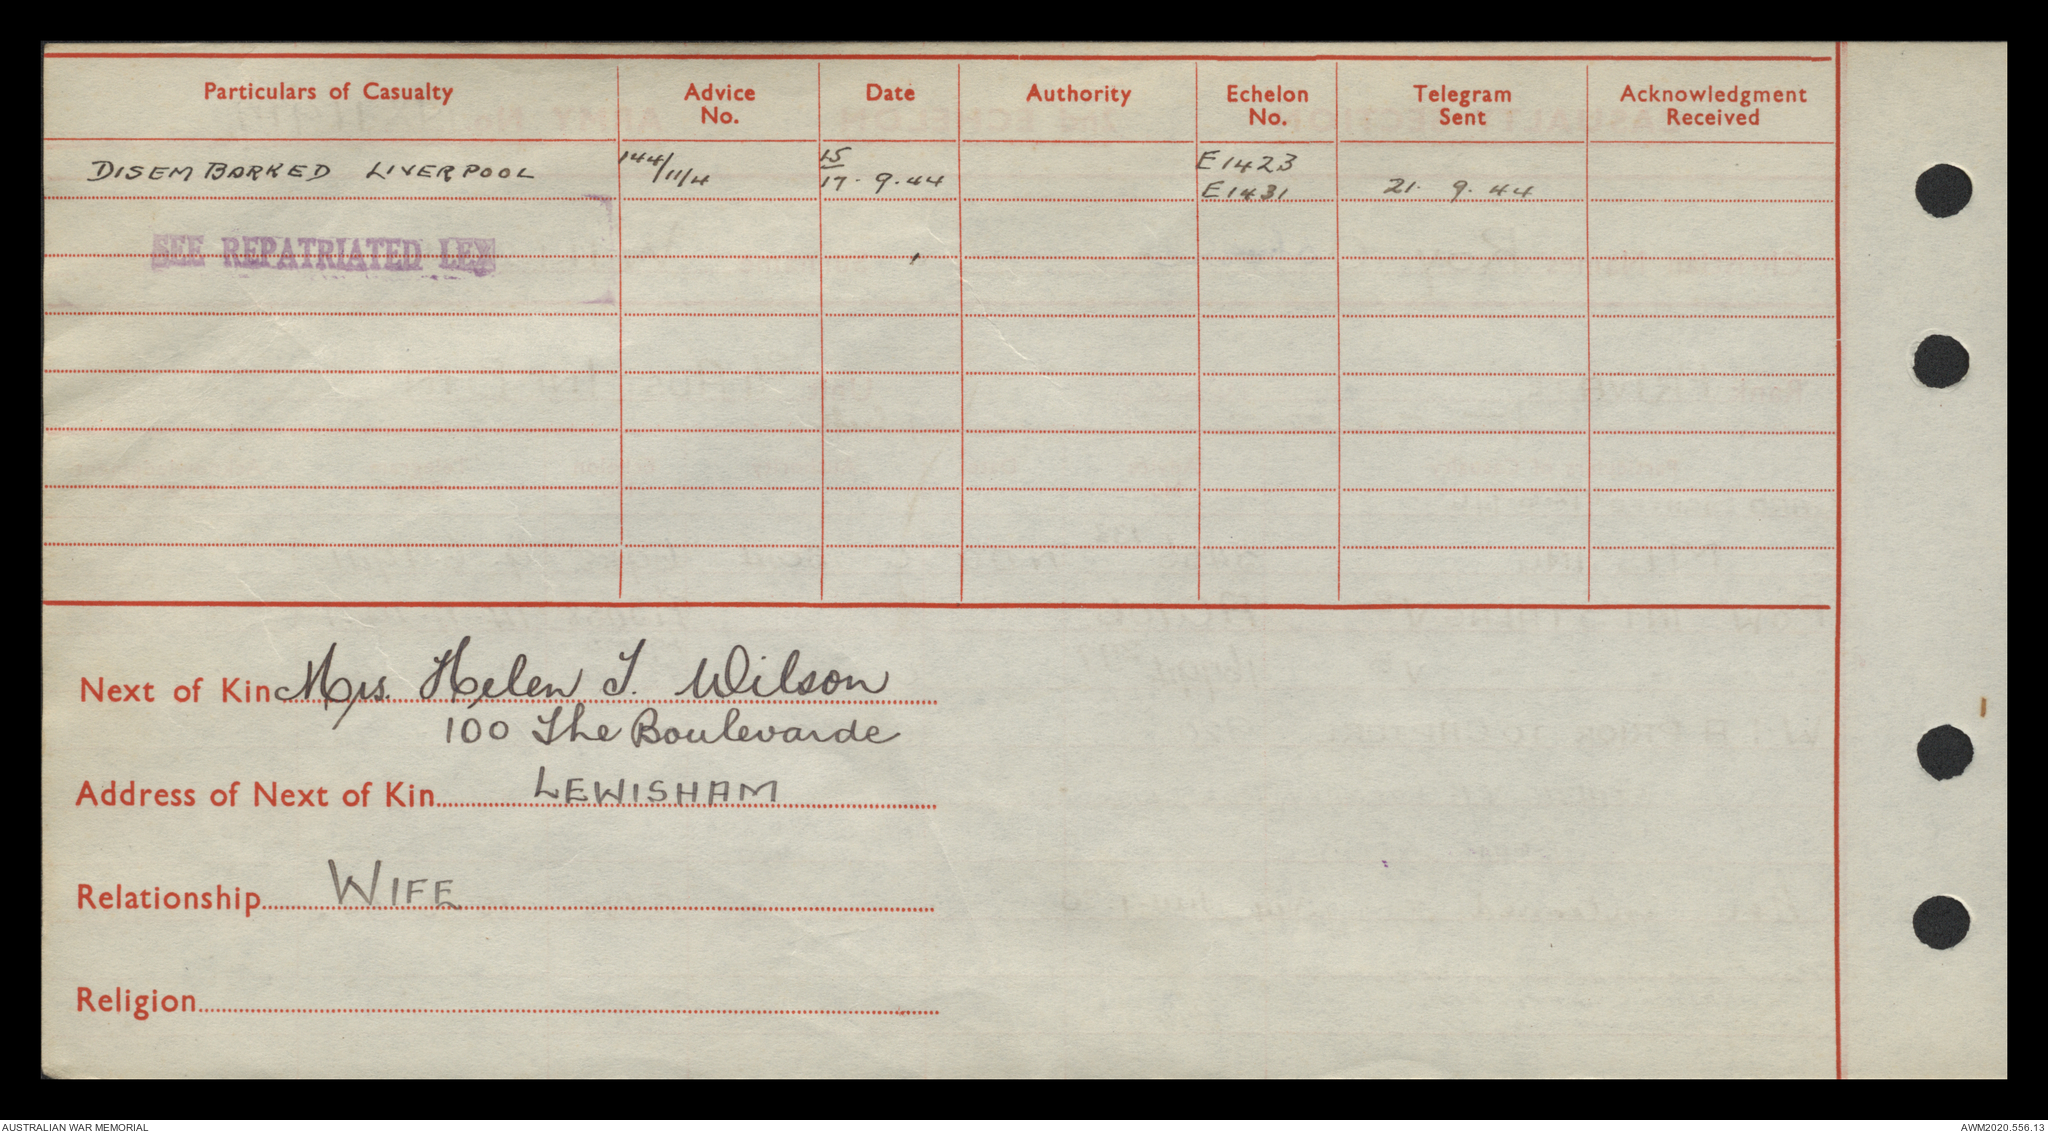 Particulars of Casualty Advice No. Date Authority Echelon No. Telegram Sent Acknowledgment Received
DISEMBARKED LIVERPOOL 144/11/4 15/17. 9. 44 E1423 E1431 21. 9. 44
SEE REPATRIATED LEX
Next of Kin Mrs. Helen I. Wilson
100 The Boulevarde
Address of Next of Kin LEWISHAM
Relationship WIFE
Religion
AUSTRALIAN WAR MEMORIAL AWM2020.556.13